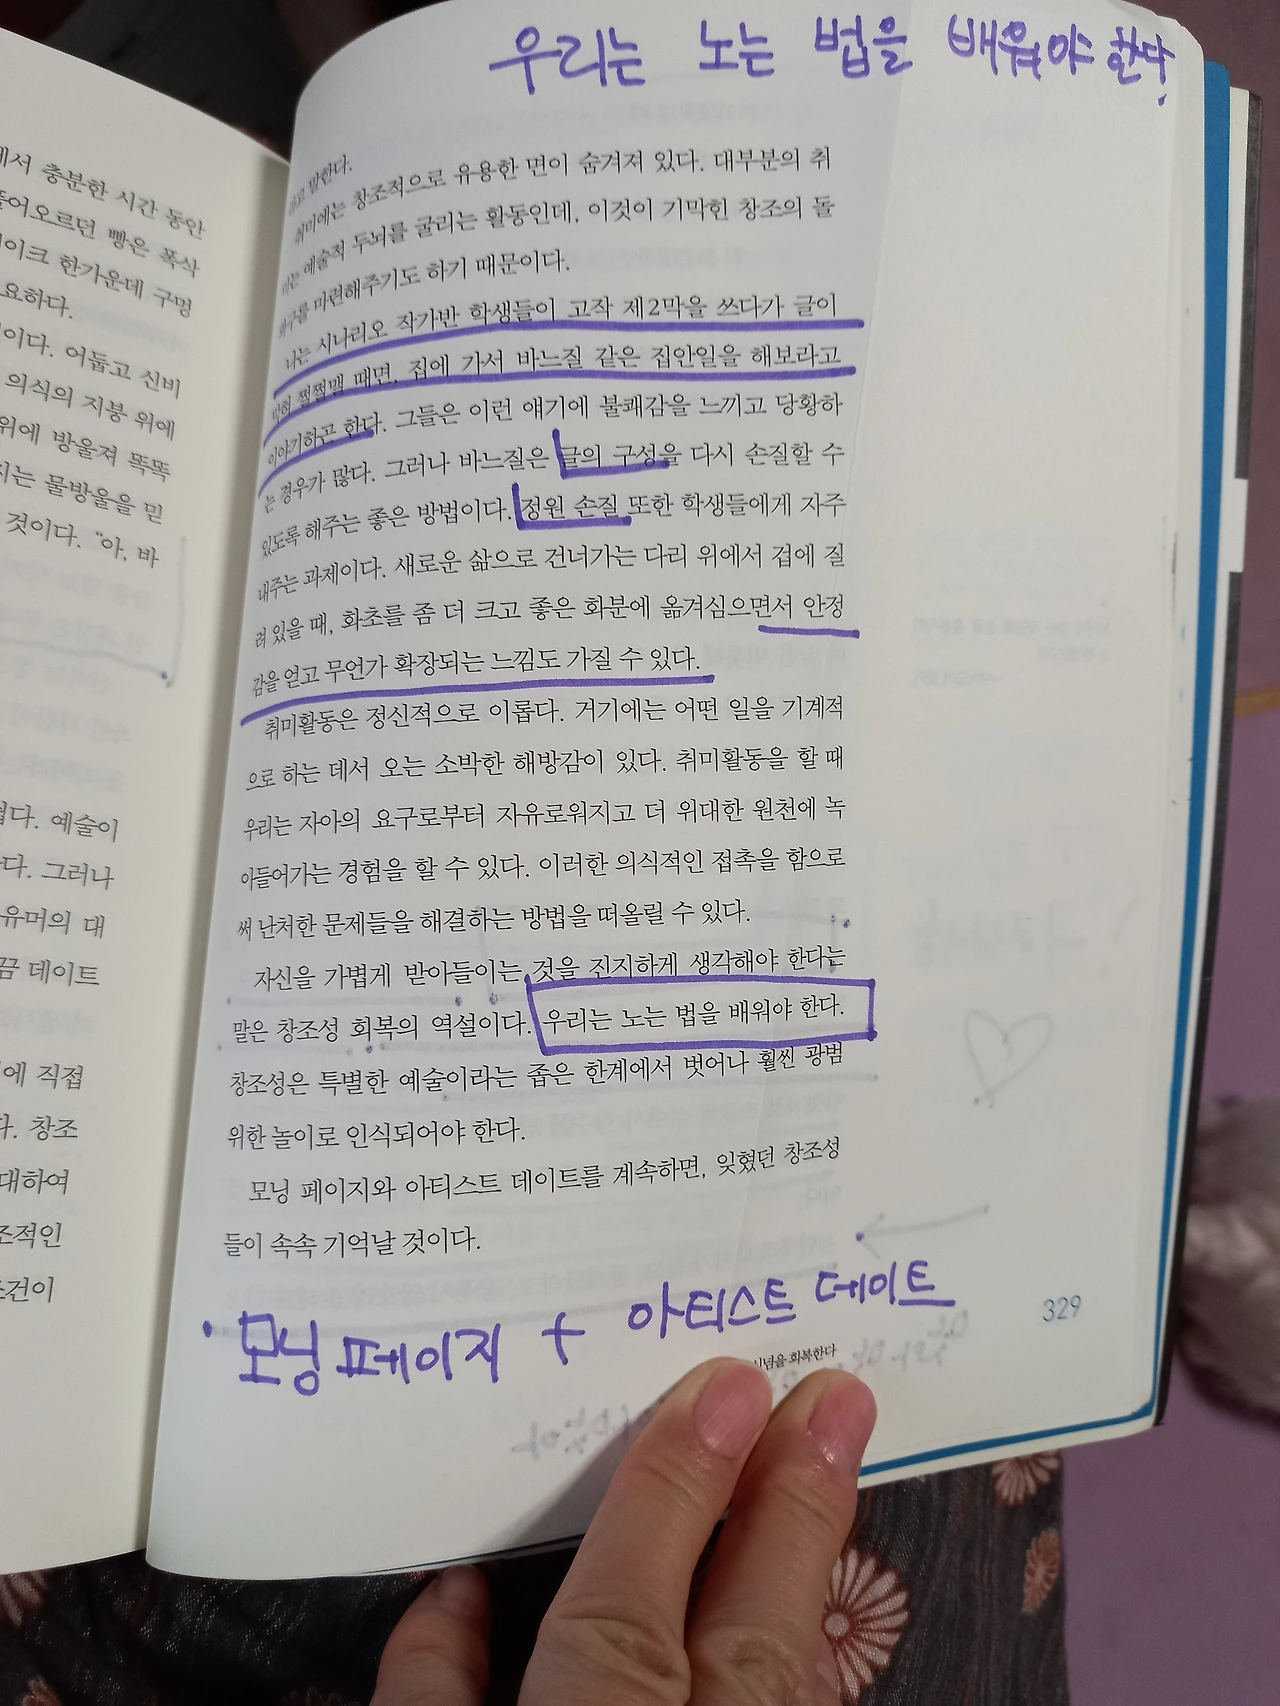 에서 충분한 시간 동안
들어오르던 빵은 폭삭
이크 한가운데 구멍
요하다.
이다. 어둡고 신비
의식의 지붕 위에
위에 방울져 똑똑
지는 물방울을 믿
것이다. "아, 바
다. 예술이
다. 그러나
유머의 대
끔 데이트
에 직접
다. 창조
대하여
조적인
조건이
우리는 노는 법을 배워야 한다!
라고 말한다.
취미에는 창조적으로 유용한 면이 숨겨져 있다. 대부분의 취
미는 예술적 두뇌를 굴리는 활동인데, 이것이 기막힌 창조의 돌
파구를 마련해주기도 하기 때문이다.
나는 시나리오 작가반 학생들이 고작 제2막을 쓰다가 글이
막혀 쩔쩔맬 때면, 집에 가서 바느질 같은 집안일을 해보라고
이야기하곤 한다. 그들은 이런 얘기에 불쾌감을 느끼고 당황하
는 경우가 많다. 그러나 바느질은 글의 구성을 다시 손질할 수
있도록 해주는 좋은 방법이다. 정원 손질 또한 학생들에게 자주
내주는 과제이다. 새로운 삶으로 건너가는 다리 위에서 겁에 질
려 있을 때, 화초를 좀 더 크고 좋은 화분에 옮겨심으면서 안정
감을 얻고 무언가 확장되는 느낌도 가질 수 있다.
취미활동은 정신적으로 이롭다. 거기에는 어떤 일을 기계적
으로 하는 데서 오는 소박한 해방감이 있다. 취미활동을 할 때
우리는 자아의 요구로부터 자유로워지고 더 위대한 원천에 녹
아들어가는 경험을 할 수 있다. 이러한 의식적인 접촉을 함으로
써 난처한 문제들을 해결하는 방법을 떠올릴 수 있다.
자신을 가볍게 받아들이는 것을 진지하게 생각해야 한다는
말은 창조성 회복의 역설이다. 우리는 노는 법을 배워야 한다.
창조성은 특별한 예술이라는 좁은 한계에서 벗어나 훨씬 광범
위한 놀이로 인식되어야 한다.
모닝 페이지와 아티스트 데이트를 계속하면, 잊혔던 창조성
들이 속속 기억날 것이다.
모닝페이지 + 아티스트 데이트
신념을 회복한다
329